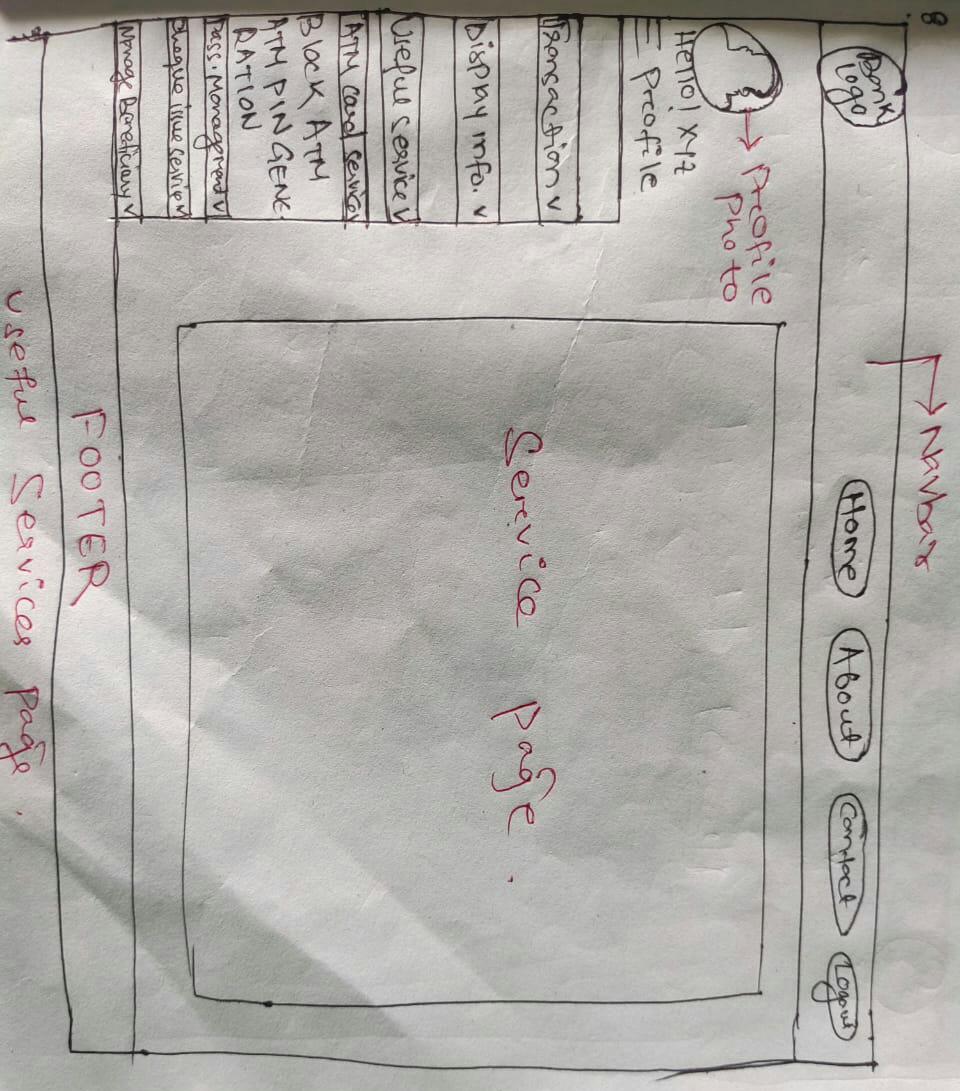 8
Navbar
Bank
Logo
Home
About
Contact
Logout
Profile
Photo
Hello! XYZ
Profile
Transaction
Display info.
Useful service
ATM card service
BLOCK ATM
ATM PIN GENE-
RATION
Pass. Management
Cheque issue service
Manage Beneficiary
Service page.
FOOTER
Useful Services page.